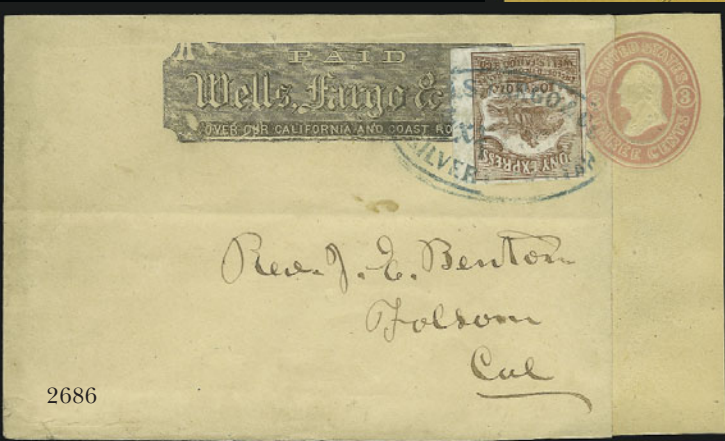 PAID
Wells, Fargo &
OVER OUR CALIFORNIA AND COAST RO
PONY EXPRESS
WELLS FARGO & CO
UNITED STATES
3
THREE CENTS
FARGO & CO
SILVER
Rev. J. E. Benton
Folsom
Cal
2686